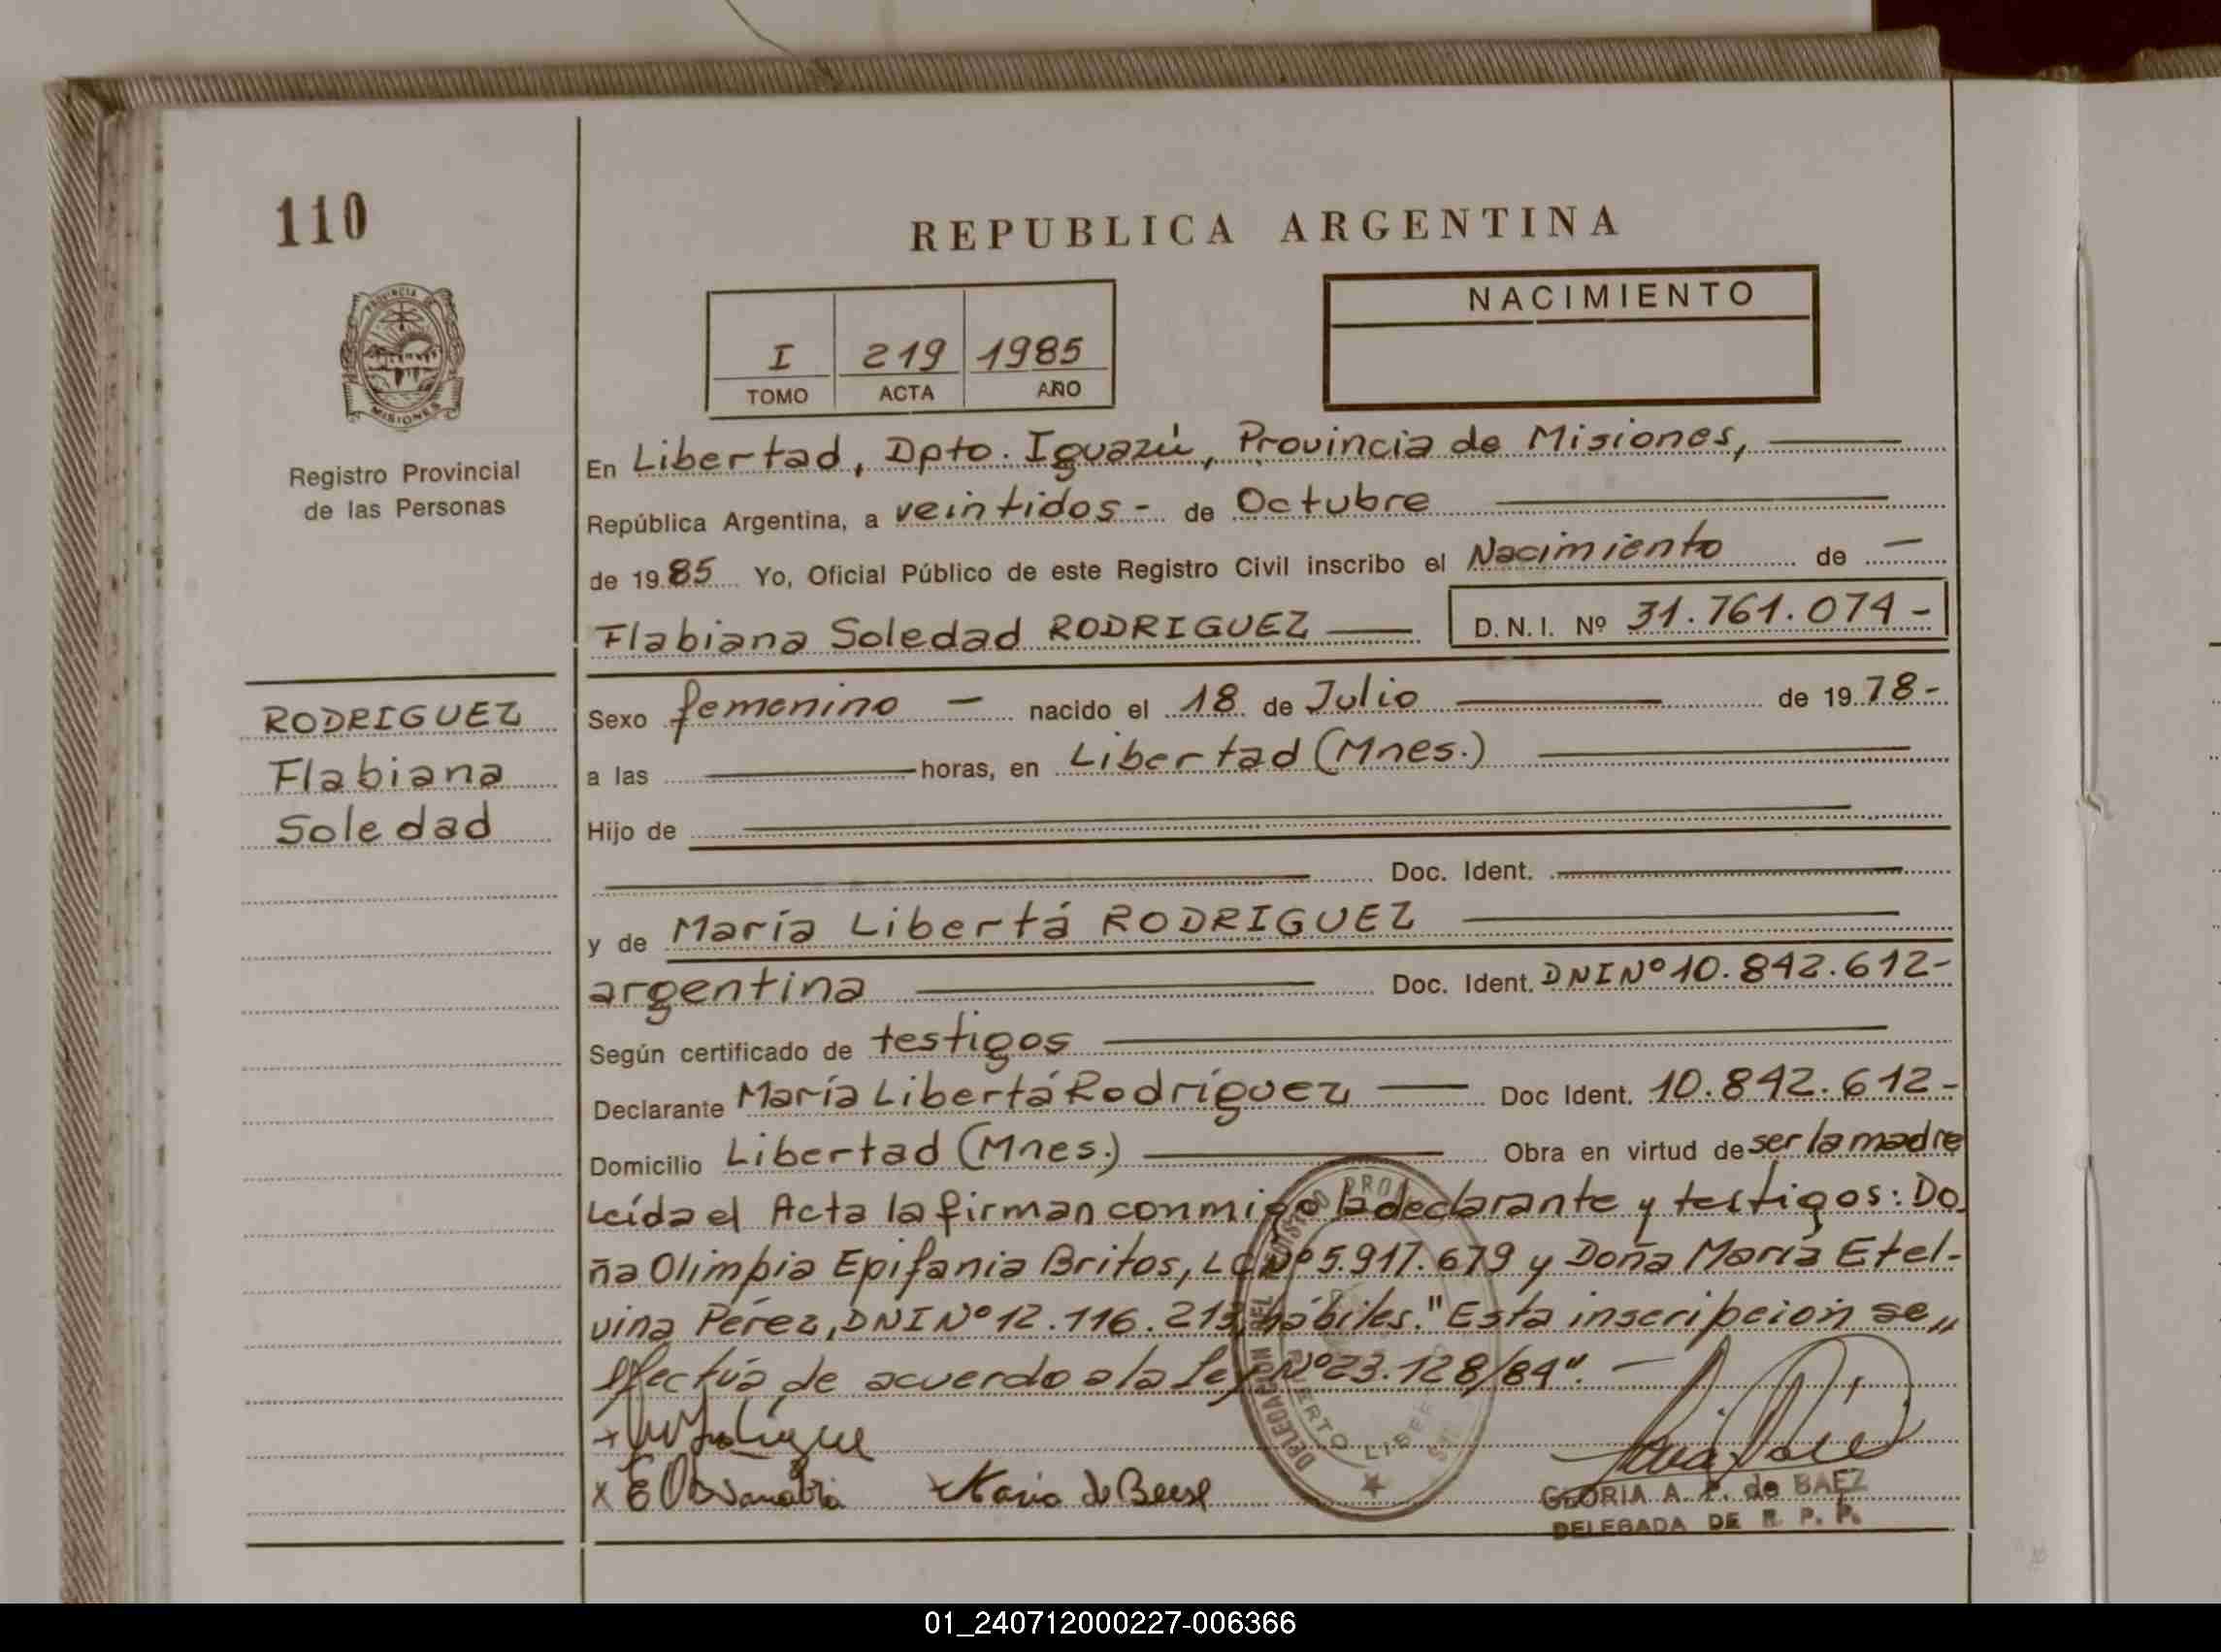 110
REPUBLICA ARGENTINA
PROVINCIA DE
MISIONES
Registro Provincial
de las Personas
NACIMIENTO
I 219 1985
TOMO ACTA AÑO
En Libertad, Dpto. Iguazú, Provincia de Misiones,
República Argentina, a veintidos - de Octubre
de 1985 Yo, Oficial Público de este Registro Civil inscribo el Nacimiento de —
Flabiana Soledad RODRIGUEZ — D.N.I. Nº 31.761.074 -
RODRIGUEZ
Flabiana
Soledad
Sexo femenino — nacido el 18 de Julio — de 1978-
a las — horas, en Libertad (Mnes.) —
Hijo de —
— Doc. Ident. —
y de María Libertá RODRIGUEZ —
argentina — Doc. Ident. DNI Nº 10.842.612-
Según certificado de testigos —
Declarante María Libertá Rodríguez — Doc Ident. 10.842.612-
Domicilio Libertad (Mnes.) — Obra en virtud de ser la madre
Leída el Acta la firman conmigo la declarante y testigos: Do-
ña Olimpia Epifania Britos, LC Nº 5.917.679 y Doña María Etel-
vina Pérez, DNI Nº 12.116.213, hábiles. "Esta inscripción se,,
efectúa de acuerdo a la Ley Nº 23.128/84". —
GLORIA A. P. de BAEZ
DELEGADA DE R. P. P.
01_240712000227-006366